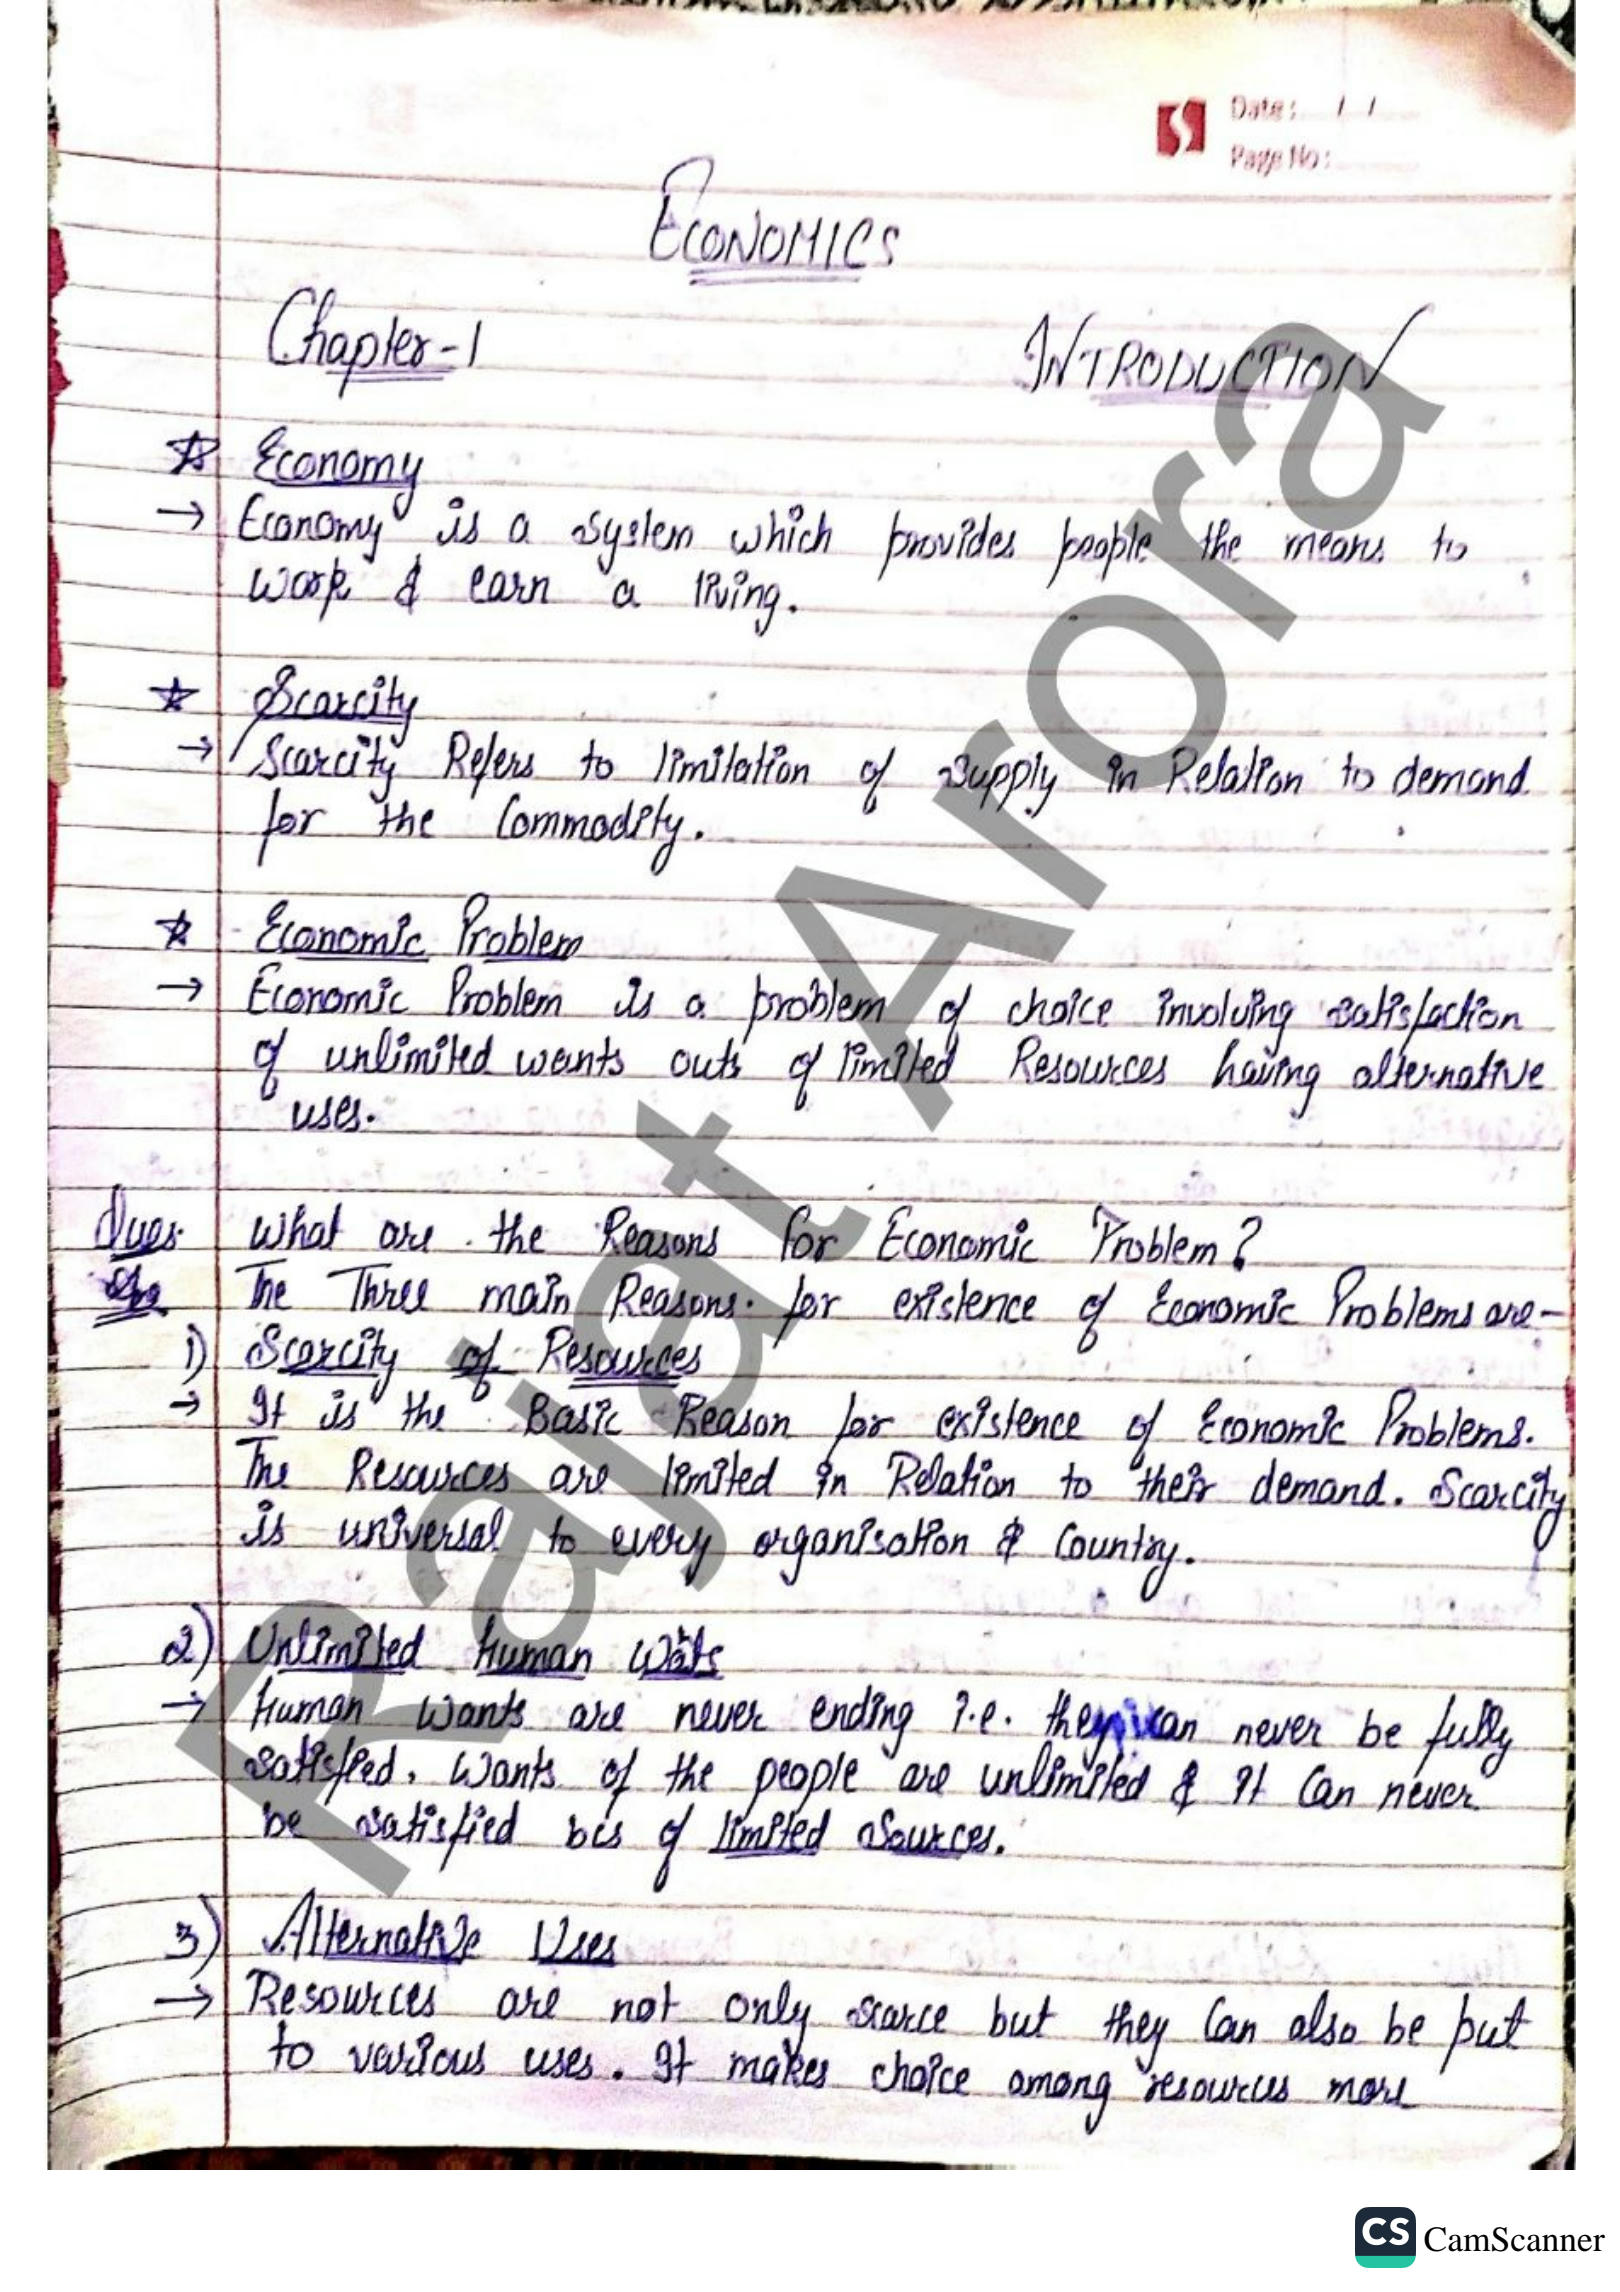 Date: / /
Page No:
ECONOMICS
Chapter-1 INTRODUCTION
Economy
→ Economy is a system which provides people the means to
work & earn a living.
Scarcity
→ Scarcity Refers to limitation of supply in Relation to demand
for the Commodity.
Economic Problem
→ Economic Problem is a problem of choice involving satisfaction
of unlimited wants outs of limited Resources having alternative
uses.
Ques. What are the Reasons for Economic Problem?
Ans The Three main Reasons for existence of Economic Problems are-
1) Scarcity of Resources
→ It is the Basic Reason for existence of Economic Problems.
The Resources are limited in Relation to their demand. Scarcity
is universal to every organisation & Country.
2) Unlimited Human Wants
→ Human Wants are never ending i.e. they can never be fully
satisfied. Wants of the people are unlimited & It Can never
be satisfied bcs of limited sources.
3) Alternative Uses
→ Resources are not only scarce but they Can also be put
to various uses. It makes choice among resources more
Rajat Arora
CS CamScanner